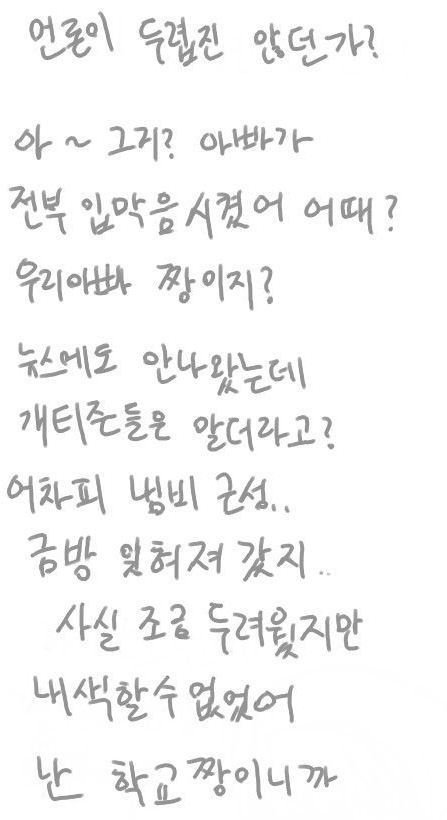 언론이 두렵진 않던가?
아 ~ 그거? 아빠가
전부 입막음시켰어 어때?
우리아빠 짱이지?
뉴스에도 안나왔는데
개티즌들은 알더라고?
어차피 냄비 근성..
금방 잊혀져 갔지..
사실 조금 두려웠지만
내색할수없었어
난 학교짱이니까